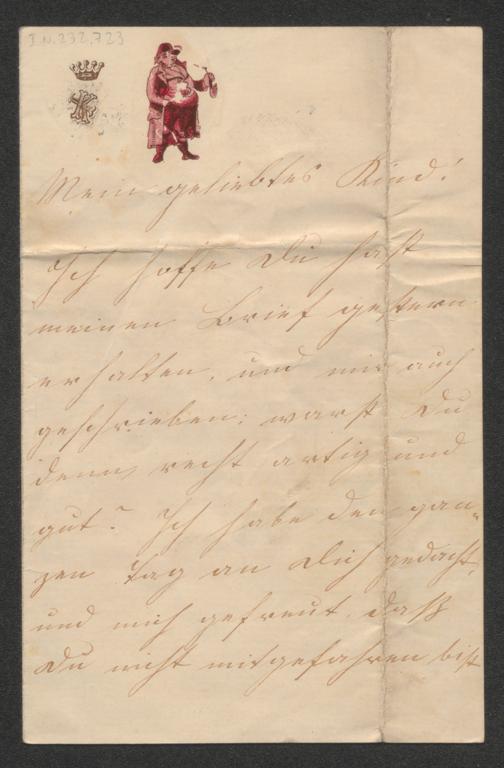 I.N. 232.723
Mein geliebtes Kind!
Ich hoffe Du hast
meinen Brief gestern
erhalten, und mir auch
geschrieben; warst Du
denn recht artig und
gut? Ich habe den gan-
zen Tag an Dich gedacht,
und mich gefreut, daß
Du nicht mitgefahren bist